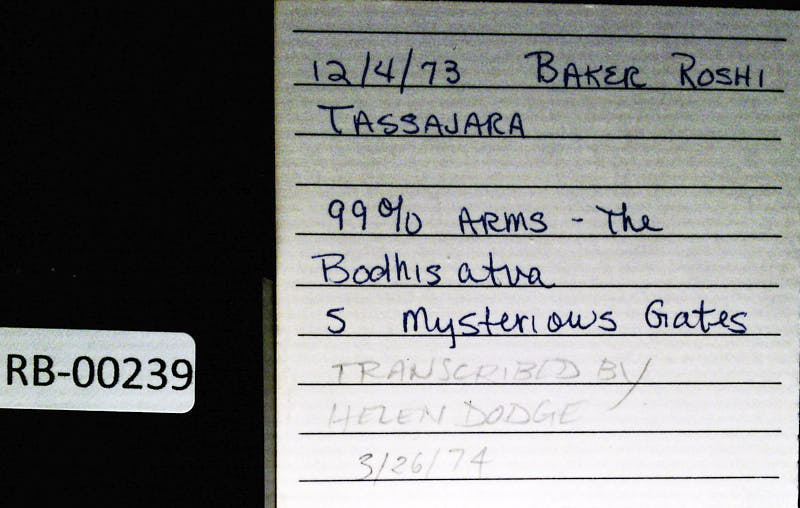 12/4/73 BAKER ROSHI
TASSAJARA
99% ARMS - The
Bodhisatva
5 Mysterious Gates
TRANSCRIBED BY
HELEN DODGE
3/26/74
RB-00239